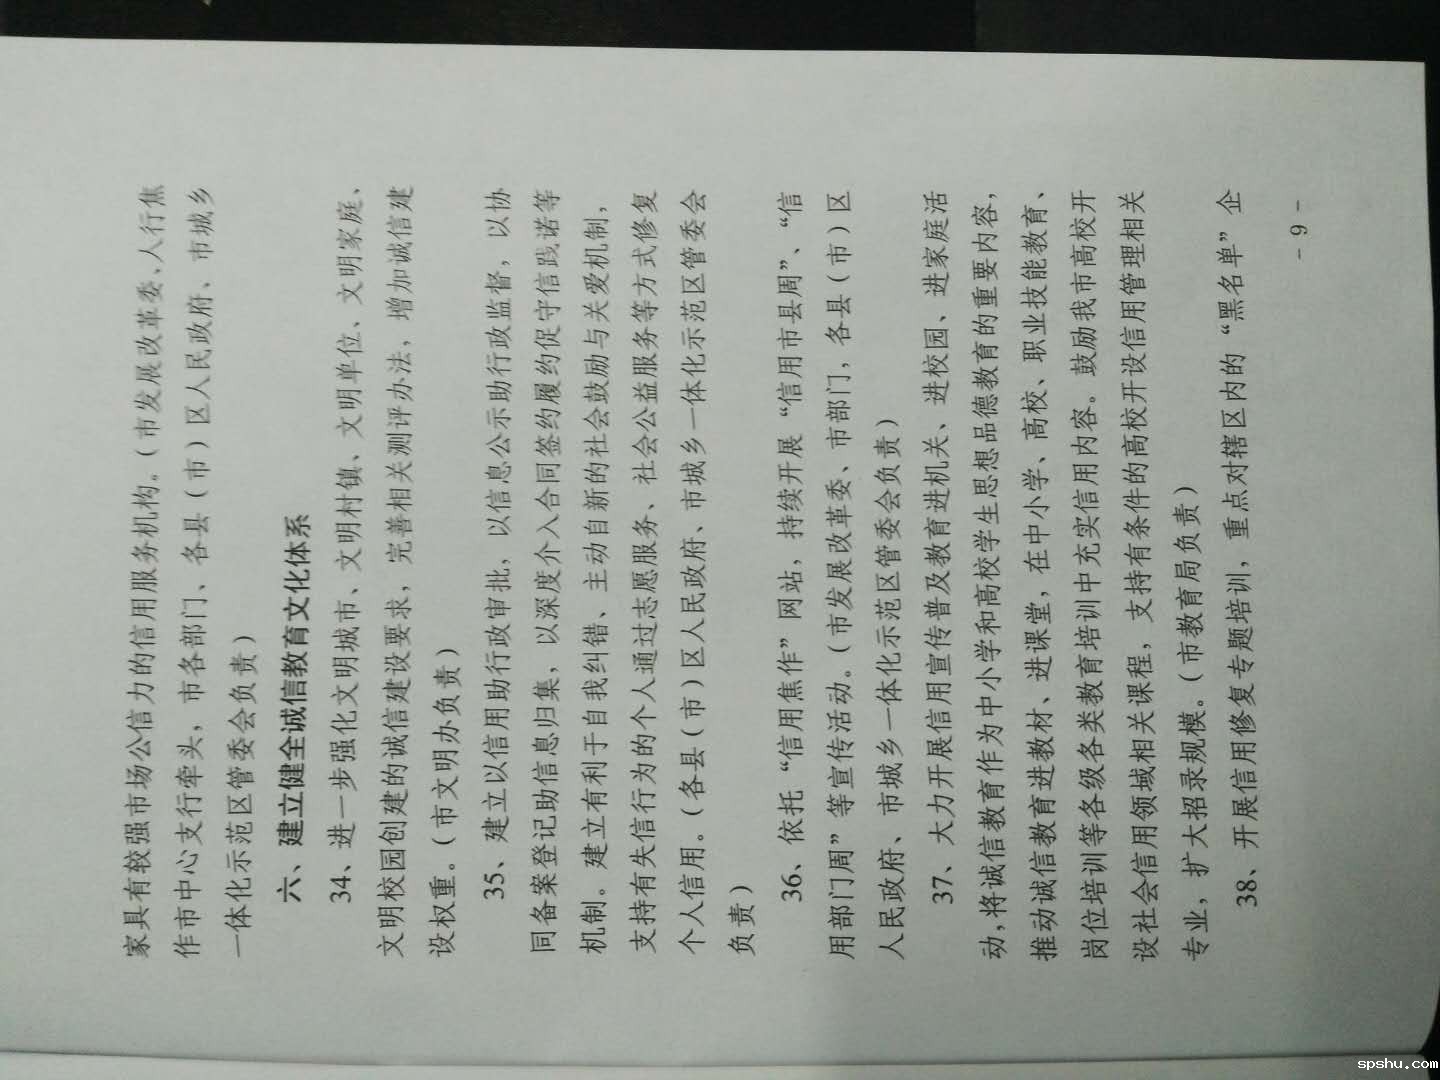 家具有较强市场公信力的信用服务机构。（市发展改革委、人行焦
作市中心支行牵头，市各部门、各县（市）区人民政府、市城乡
一体化示范区管委会负责）
六、建立健全诚信教育文化体系
34、进一步强化文明城市、文明村镇、文明单位、文明家庭、
文明校园创建的诚信建设要求，完善相关测评办法，增加诚信建
设权重。（市文明办负责）
35、建立以信用助行政审批，以信息公示助行政监督，以协
同备案登记助信息归集，以深度介入合同签约履约促守信践诺等
机制。建立有利于自我纠错、主动自新的社会鼓励与关爱机制，
支持有失信行为的个人通过志愿服务、社会公益服务等方式修复
个人信用。（各县（市）区人民政府、市城乡一体化示范区管委会
负责）
36、依托“信用焦作”网站，持续开展“信用市县周”、“信
用部门周”等宣传活动。（市发展改革委、市部门，各县（市）区
人民政府、市城乡一体化示范区管委会负责）
37、大力开展信用宣传普及教育进机关、进校园、进家庭活
动,将诚信教育作为中小学和高校学生思想品德教育的重要内容，
推动诚信教育进教材、进课堂，在中小学、高校、职业技能教育、
岗位培训等各级各类教育培训中充实信用内容。鼓励我市高校开
设社会信用领域相关课程，支持有条件的高校开设信用管理相关
专业，扩大招录规模。（市教育局负责）
38、开展信用修复专题培训，重点对辖区内的“黑名单”企
- 9 -
spshu.com